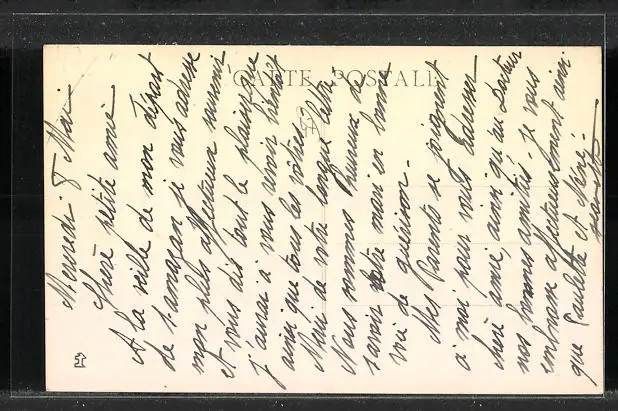 CARTE POSTALE
Mercredi 8 Mai
Chère petite amie
A la veille de mon départ
de je vous adresse
mon plus affectueux souvenir
et vous dis tout le plaisir que
J'aurai à vous revoir bientôt
ainsi que tous les vôtres.
Merci de votre longue lettre
Nous sommes heureux de
savoir votre mari en bonne
voie de guérison.
Mes Parents se joignent
à moi pour vous adresser
chère amie, ainsi qu'au Docteur
nos bonnes amitiés. Je vous
embrasse affectueusement ainsi
que Paulette et